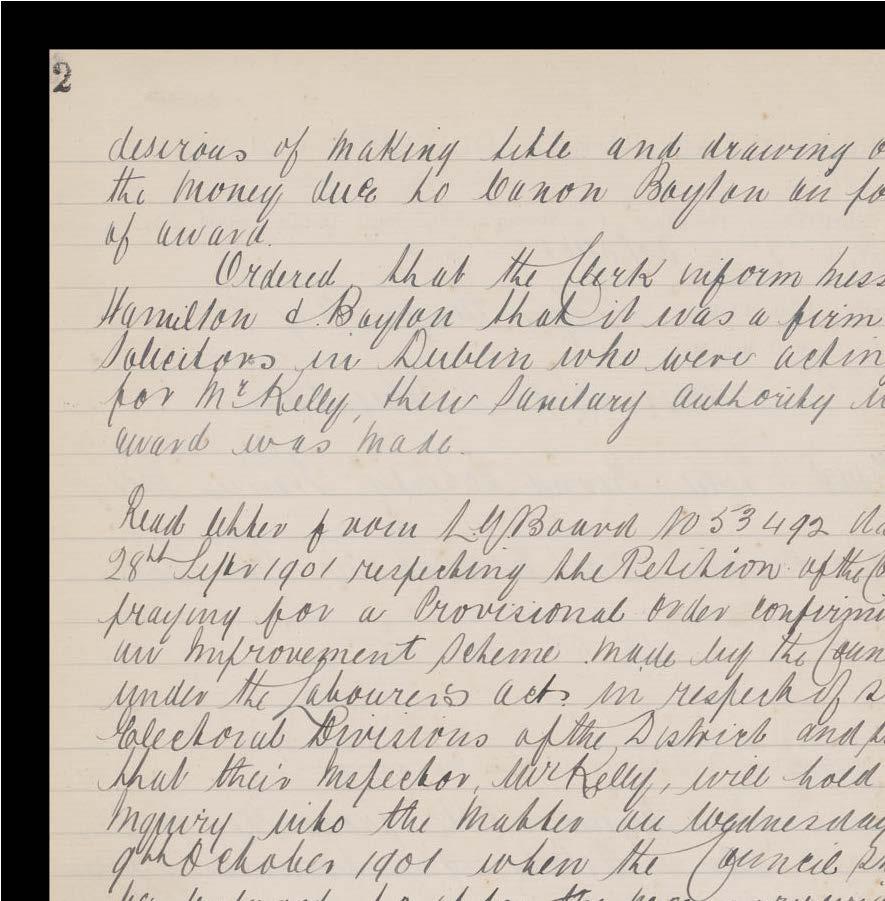 2
desirous of making title and drawing
the money due to Canon Bayton on
of award.
Ordered that the Clerk inform Mess
Hamilton & Bayton that it was a firm
Solicitors in Dublin who were actin
for Mr Kelly, their Sanitary Authority
award was made.
Read letter from L.G Board No 53492 da
28th Septbr 1901 respecting the Petition of the Co
praying for a Provisional Order confirmi
an Improvement Scheme made by the Coun
under the Labourers acts in respect of s
Electoral Divisions of the District and
that their Inspector, Mr Kelly, will hold
Inquiry into the matter on Wednesday
9th October 1901 when the Council